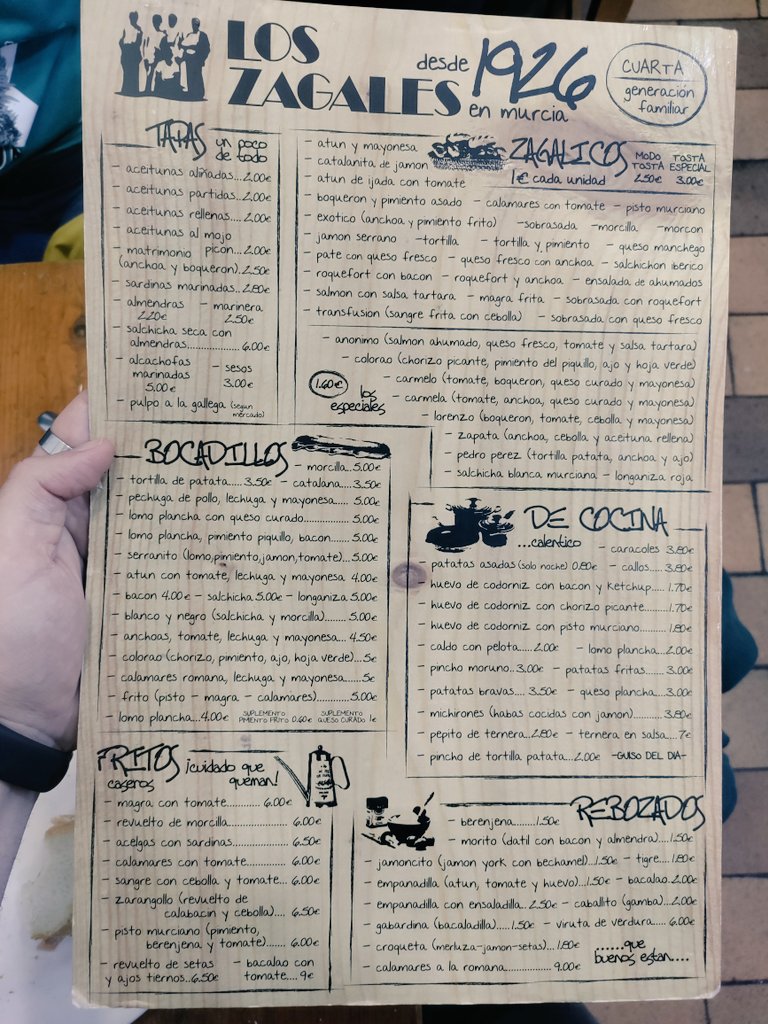 LOS ZAGALES
desde 1926 en murcia
CUARTA
generación
familiar
TAPAS un poco
de todo
- aceitunas aliñadas...2.00€
- aceitunas partidas...2.00€
- aceitunas rellenas....2.00€
- aceitunas al mojo
picon...2.00€
- matrimonio
(anchoa y boqueron).2.50€
- sardinas marinadas..2.80€
- almendras 2.20€ - marinera 2.50€
- salchicha seca con
almendras.................. 6.00€
- alcachofas
marinadas
5.00€
- sesos
3.00€
- pulpo a la gallega (segun
mercado)
ZAGALICOS
1€ cada unidad
MODO TOSTA 2.50€
TOSTA ESPECIAL 3.00€
- atun y mayonesa
- catalanita de jamon
- atun de ijada con tomate
- boqueron y pimiento asado - calamares con tomate - pisto murciano
- exotico (anchoa y pimiento frito) -sobrasada -morcilla -morcon
- jamon serrano -tortilla - tortilla y pimiento - queso manchego
- pate con queso fresco - queso fresco con anchoa - salchichon iberico
- roquefort con bacon - roquefort y anchoa - ensalada de ahumados
- salmon con salsa tartara - magra frita - sobrasada con roquefort
- transfusion (sangre frita con cebolla) - sobrasada con queso fresco
1.60€ los
especiales
- anonimo (salmon ahumado, queso fresco, tomate y salsa tartara)
- colorao (chorizo picante, pimiento del piquillo, ajo y hoja verde)
- carmelo (tomate, boqueron, queso curado y mayonesa)
- carmela (tomate, anchoa, queso curado y mayonesa)
- lorenzo (boqueron, tomate, cebolla y mayonesa)
- zapata (anchoa, cebolla y aceituna rellena)
- pedro perez (tortilla patata, anchoa y ajo)
- salchicha blanca murciana - longaniza roja
BOCADILLOS
- morcilla..5.00€
- tortilla de patata..... 3.50€ - catalana...3.50€
- pechuga de pollo, lechuga y mayonesa..... 5.00€
- lomo plancha con queso curado................. 5.00€
- lomo plancha, pimiento piquillo, bacon...... 5.00€
- serranito (lomo,pimiento,jamon,tomate)...5.00€
- atun con tomate, lechuga y mayonesa 4.00€
- bacon 4.00€ - salchicha 5.00€ - longaniza 5.00€
- blanco y negro (salchicha y morcilla)....... 5.00€
- anchoas, tomate, lechuga y mayonesa... 4.50€
- colorao (chorizo, pimiento, ajo, hoja verde)...5€
- calamares romana, lechuga y mayonesa......5€
- frito (pisto - magra - calamares).............5.00€
- lomo plancha...4.00€ SUPLEMENTO PIMIENTO FRITO 0.60€ SUPLEMENTO QUESO CURADO 1€
DE COCINA
...calentico
- caracoles 3.80€
- patatas asadas (solo noche) 0.80€ - callos.....3.80€
- huevo de codorniz con bacon y ketchup.....1.70€
- huevo de codorniz con chorizo picante.........1.70€
- huevo de codorniz con pisto murciano.......... 1.80€
- caldo con pelota.....2.00€ - lomo plancha...2.00€
- pincho moruno..3.00€ - patatas fritas...... 3.00€
- patatas bravas.... 3.50€ - queso plancha....3.00€
- michirones (habas cocidas con jamon)..........3.80€
- pepito de ternera...2.80€ - ternera en salsa....7€
- pincho de tortilla patata...2.00€ -GUISO DEL DIA-
FRITOS
caseros
¡cuidado que
queman!
- magra con tomate............ 6.00€
- revuelto de morcilla........... 6.00€
- acelgas con sardinas........... 6.50€
- calamares con tomate........... 6.00€
- sangre con cebolla y tomate... 6.00€
- zarangollo (revuelto de
calabacin y cebolla).... 6.50€
- pisto murciano (pimiento,
berenjena y tomate)...... 6.00€
- revuelto de setas
y ajos tiernos..6.50€
- bacalao con
tomate.... 9€
REBOZADOS
- berenjena........1.50€
- morito (datil con bacon y almendra)....1.50€
- jamoncito (jamon york con bechamel)...1.50€ - tigre....1.80€
- empanadilla (atun, tomate y huevo)..1.50€ - bacalao 2.00€
- empanadilla con ensaladilla...2.50€ - caballito (gamba)...2.00€
- gabardina (bacaladilla).....1.50€ - viruta de verdura..... 6.00€
- croqueta (merluza-jamon-setas)...1.80€
- calamares a la romana.................. 9.00€
......que
buenos estan....